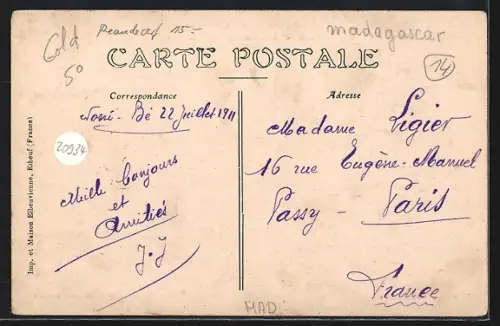 Gold
50
15-
madagascar
14
CARTE POSTALE
Correspondance
Adresse
Nossi-Bé 22 Juillet 1911
20934
Mille bonjours
et
Amitiés
J. J
Madame Ligier
16 rue Eugène-Manuel
Passy - Paris
France
Imp. et Maison Elbeuvienne, Elbeuf (France)
MAD.